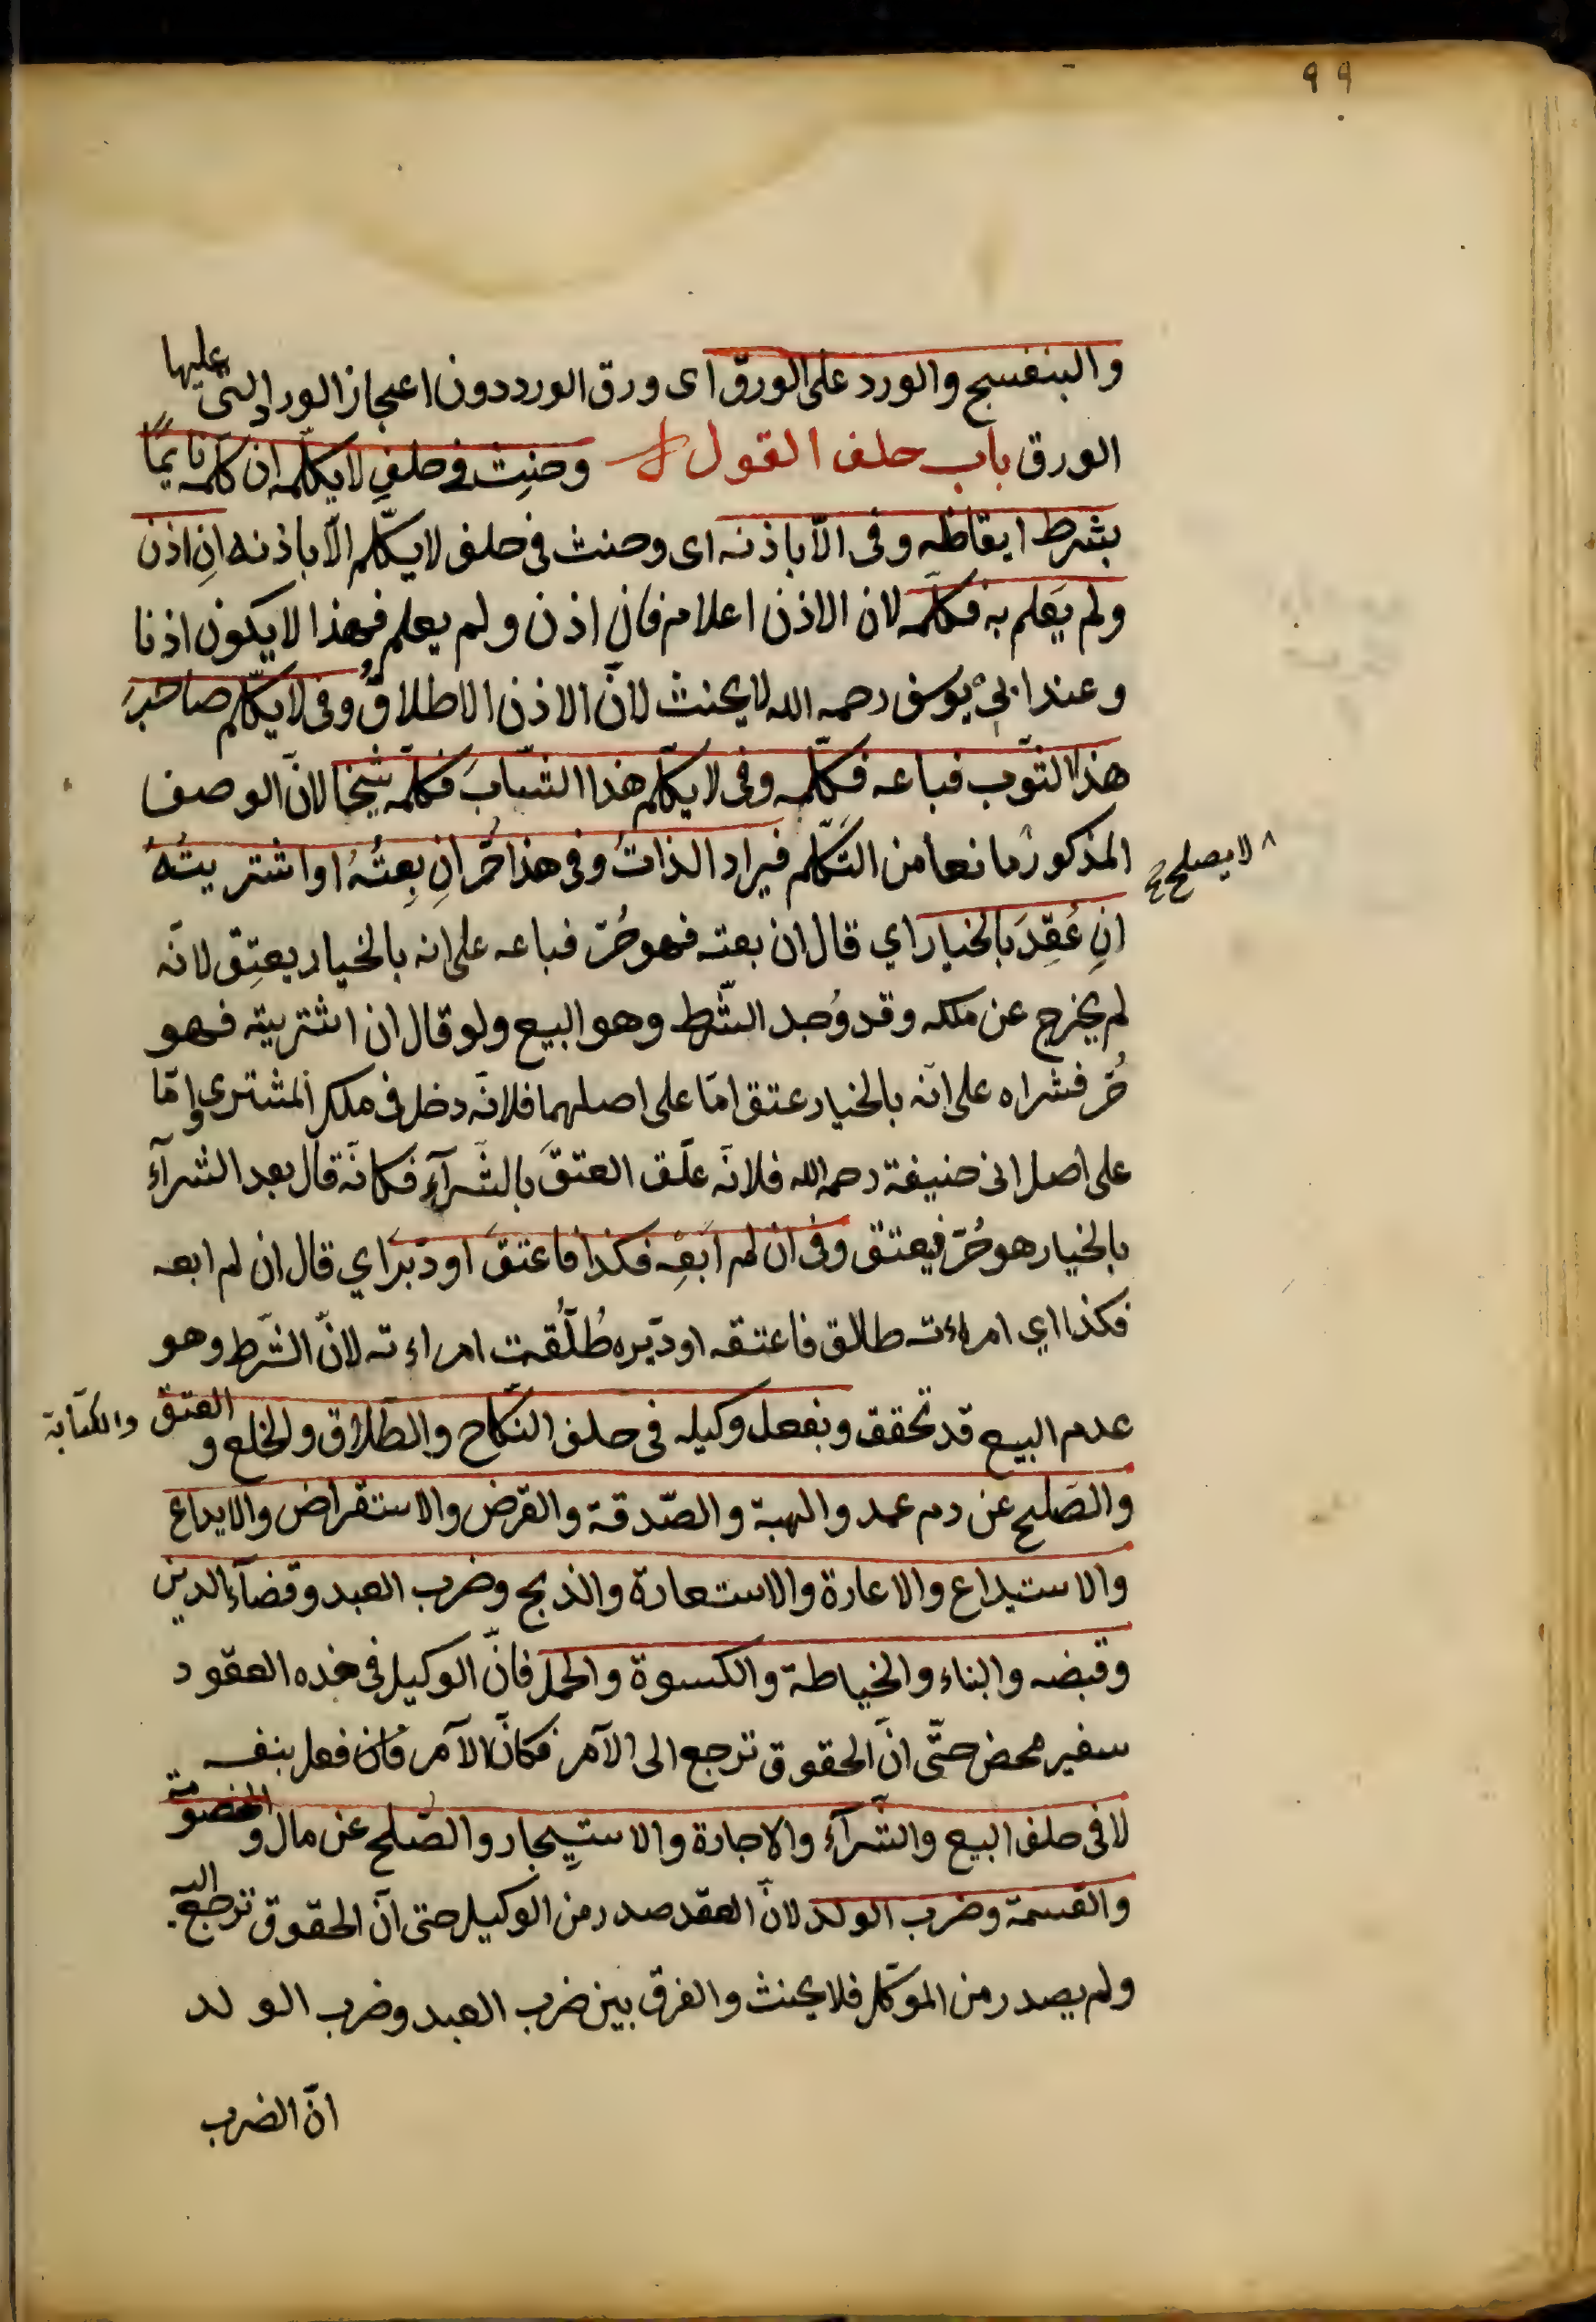 ٩٩
والبنفسج والورد على الورق اى ورق الورد دون اعجاز الورد التى عليها
الورق باب حلف القول وحنِث فى حلفِ لا يكلّمه ان كلّمه نايمًا
بشرط ايقاظِه وفى الّا باذنه اى وحنث فى حلف لا يكلّم الّا باذنه انِ اذن
ولم يَعلم به فكلّمه لان الاذن اعلام فان اذن ولم يعلم فهذا لا يكون اذنا
وعند ابى يوسف رحمه الله لا يحنث لانّ الاذن الاطلاق وفى لا يكلّم صاحبَ
هذا الثوب فباعه فكلّمه وفى لا يكلّم هذا الشابَ فكلّمه شيخا لانّ الوصف
المذكور مانعا من التكلّم فيراد الذات وفى هذا حُرّ انِ بِعتُهُ او اشتريتُهُ
لا يصلح صح
انِ عُقِدَ بالخيار اي قال ان بعته فهو حُرّ فباعه على انه بالخيار يعتِق لانّه
لم يخرج عن ملكه وقد وُجد الشّرط وهو البيع ولو قال ان اشتريته فهو
حُرّ فشراه على انّه بالخيار عتق امّا على اصلهما فلانّه دخل فى ملك المشترى وامّا
على اصل ابى حنيفة رحمه الله فلانّه علّق العتقَ بالشّرآءِ فكانّه قال بعد الشرآءِ
بالخيار هو حُرّ فيعتق وفى ان لم ابَعِه فكذا فاعتقَ او دبّرَ اي قال ان لم ابعه
فكذا اي امراءته طالق فاعتقه او دبّره طُلّقت امراءته لانّ الشّرط وهو
عدم البيع قد تحقق وبفعل وكيله فى حلف النّكاح والطّلاق والخلع و العتق والكتابة
والصّلح عن دم عمد والهبة والصّدقة والقرض والاستقراض والايداع
والاستيداع والاعارة والاستعارة والذبح وضرب العبد وقضآء الدين
وقبضه والبناء والخياطة والكسوة والحمل فانّ الوكيل فى هذه العقود
سفير محض حتّى انّ الحقوق ترجع الى الآمر فكانّ الآمر فان فعل بنفسه
لا فى حلف البيع والشّرآء والاجارة والاستيجار والصّلح عن مال و الخصومة
والقسمة وضرب الولد لانّ العقد صدر من الوكيل حتى انّ الحقوق ترجع اليه
ولم يصدر من الموكّل فلا يحنث والفرق بين ضرب العبد وضرب الولد
انّ الضرب